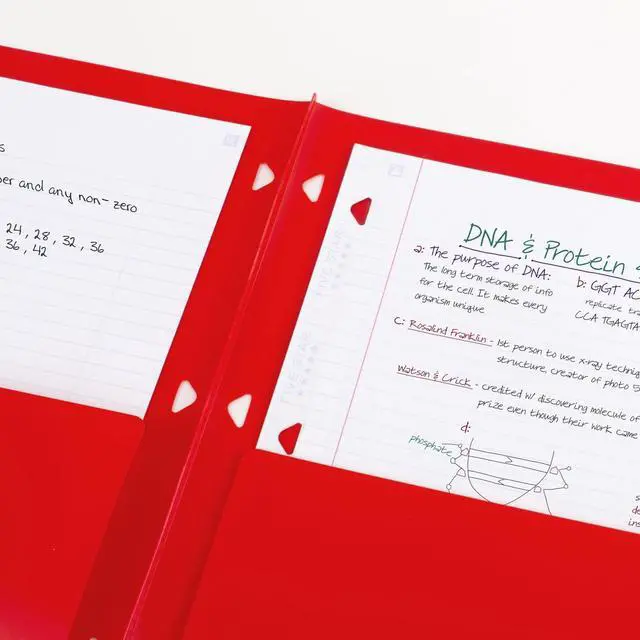 s
er and any non-zero
24, 28, 32, 36
36, 42
DNA & Protein
a: The purpose of DNA:
The long term storage of info
for the cell. It makes every
organism unique
b: GGT AC
replicate tra
CCA TGAGTA
C: Rosalind Franklin - 1st person to use x-ray techniq
structure, creator of photo 5
Watson & Crick - credited w/ discovering molecule of
prize even though their work came
d:
phosphate
s
de
ins
FIVE STAR
FIVE STAR